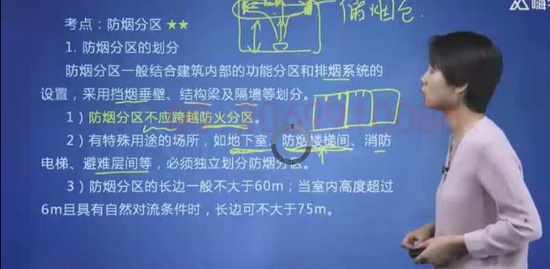 储烟仓
考点：防烟分区 ★★
1. 防烟分区的划分
防烟分区一般结合建筑内部的功能分区和排烟系统的
设置，采用挡烟垂壁、结构梁及隔墙等划分。
1）防烟分区不应跨越防火分区。
2）有特殊用途的场所，如地下室、防烟楼梯间、消防
电梯、避难层间等，必须独立划分防烟分区。
3）防烟分区的长边一般不大于60m；当室内高度超过
6m且具有自然对流条件时，长边可不大于75m。